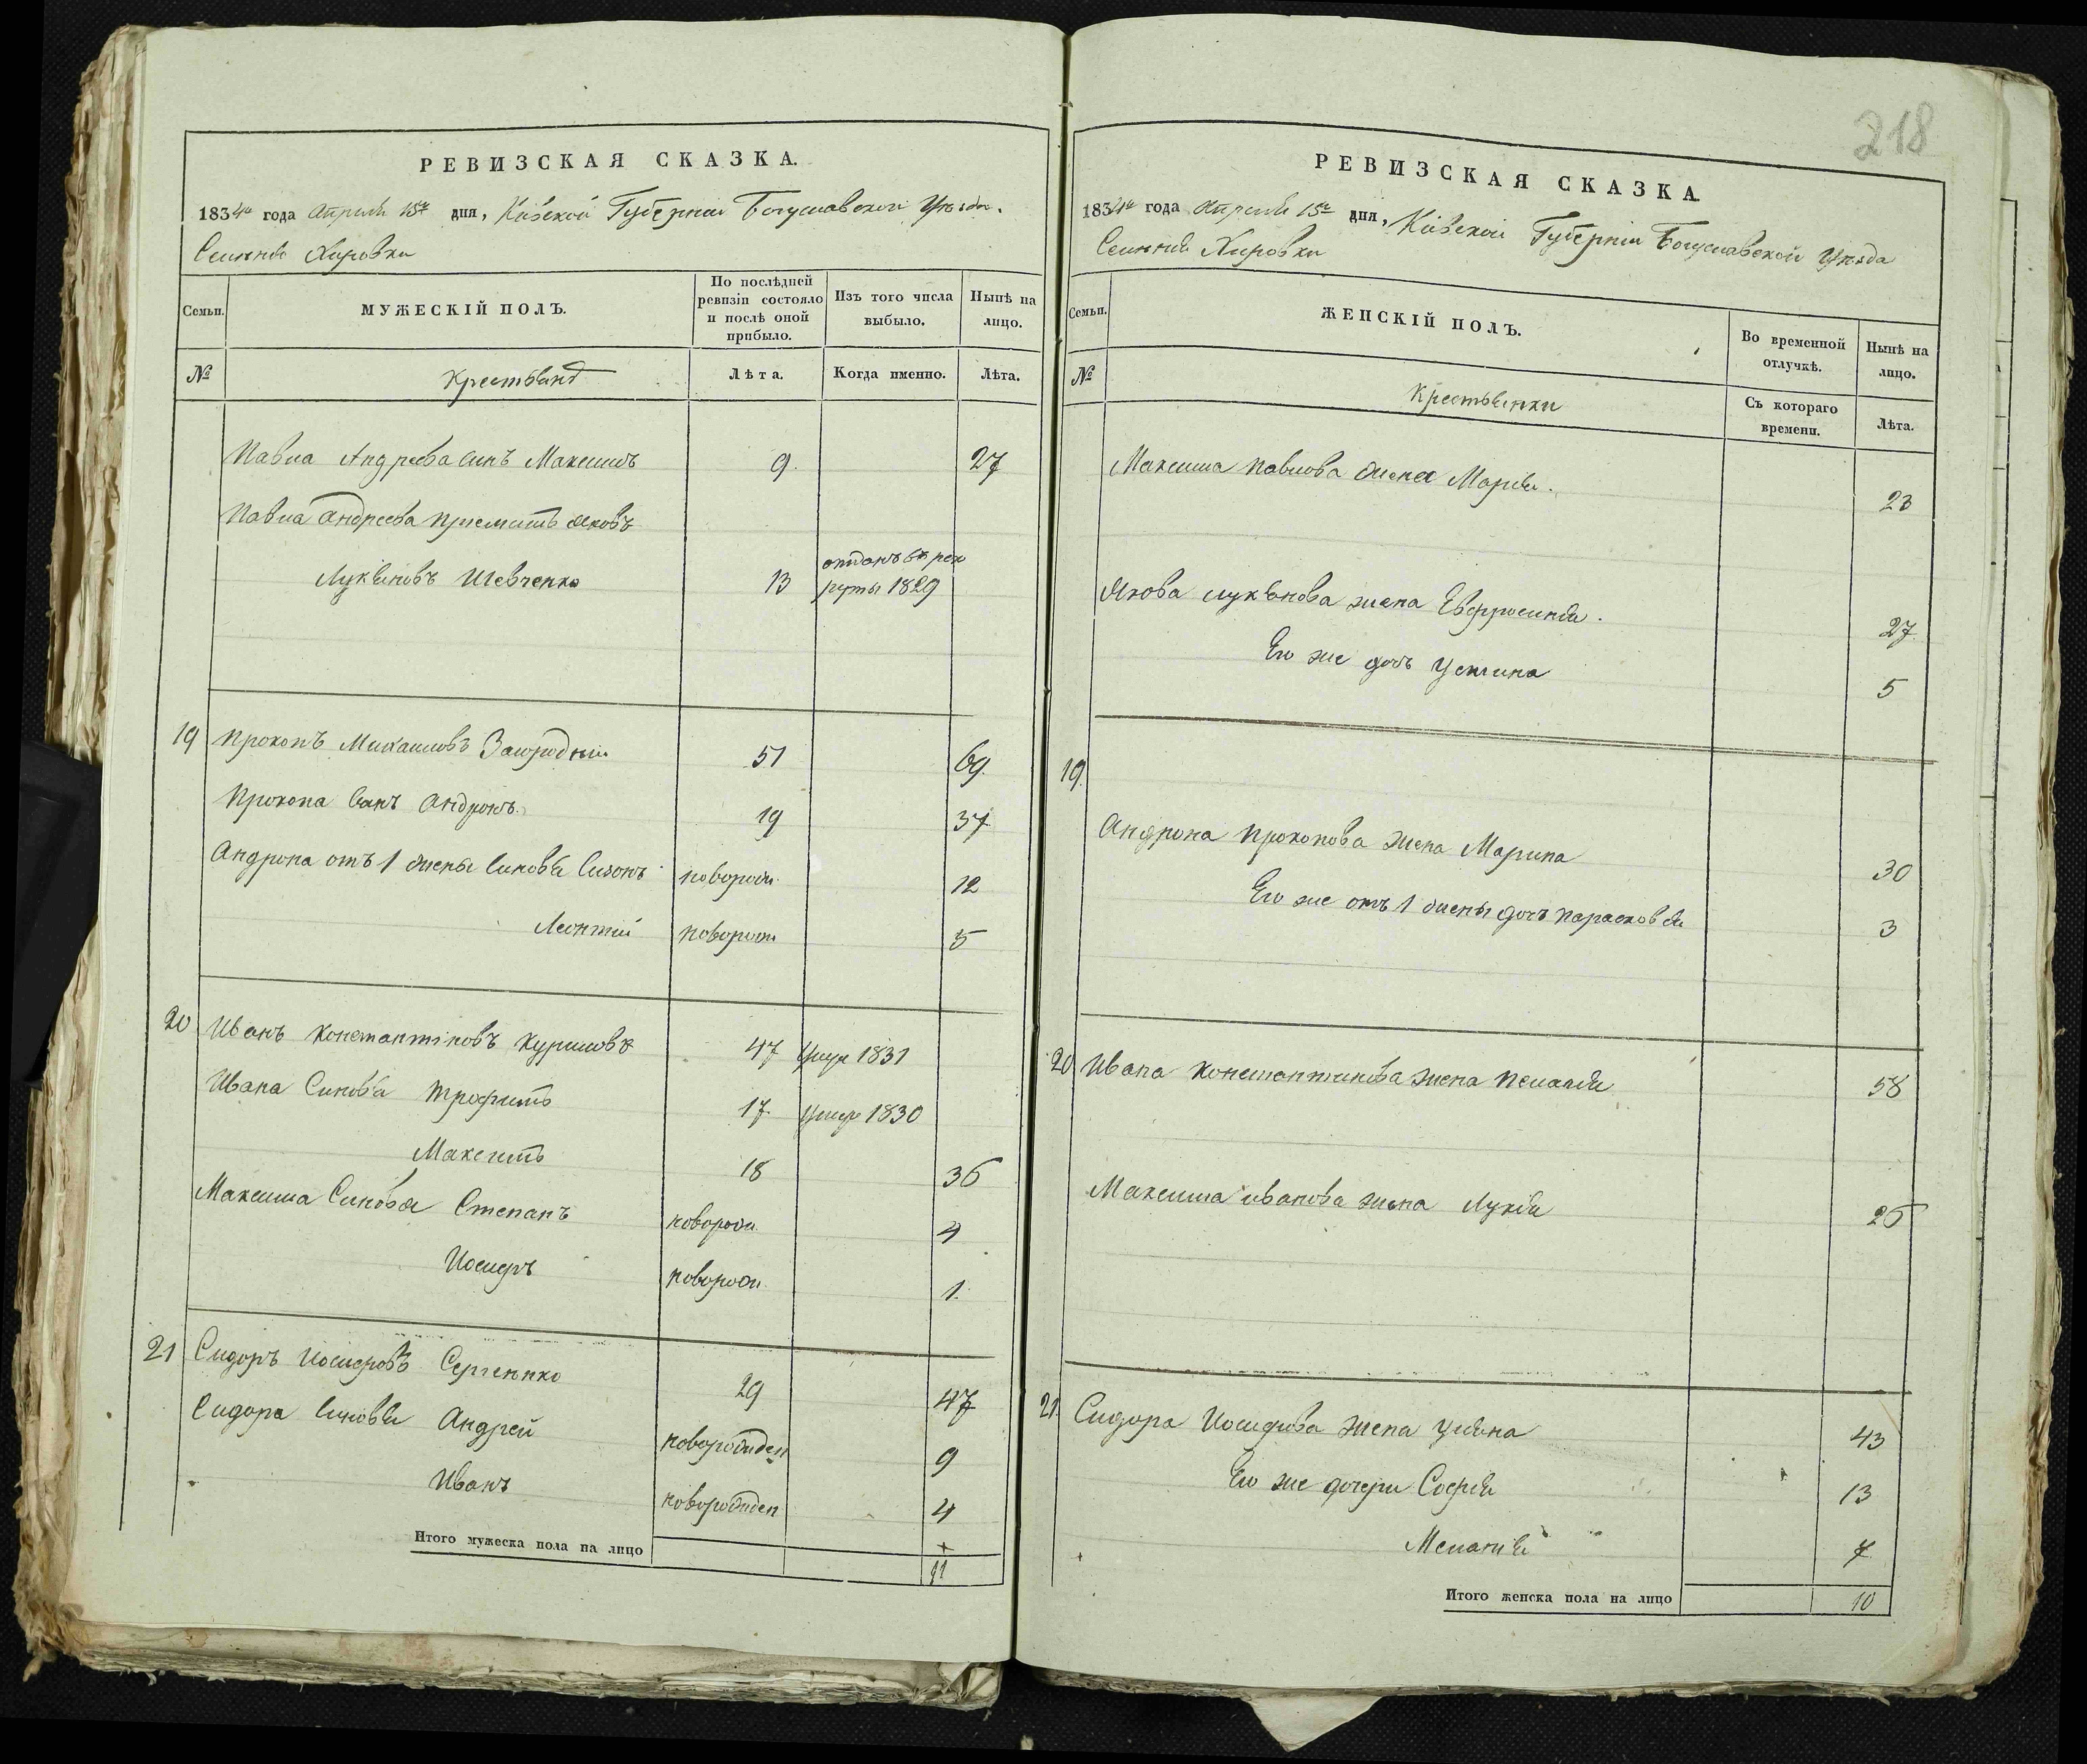 218
РЕВИЗСКАЯ СКАЗКА.
1834го года Апреля 15го дня, Кіевской Губерніи Богуславской Уезда.
Селенія Хировки
Семьи.
МУЖЕСКІЙ ПОЛЪ.
По послѣдней ревизіи состояло и послѣ оной прибыло.
Изъ того числа выбыло.
Нынѣ на лицо.
№
Крестьянъ
Лѣта.
Когда именно.
Лѣта.
Павла Андреева синъ Максимъ 9. 27
Павла Андреева приемишъ Яковъ
Лукьяновъ Шевченко 13 отданъ въ рек
руты 1829
19 Прокопъ Михаиловъ Загородній 51 69.
Прокопа синъ Андронъ. 19 37
Андрона отъ 1 жены синовья Сизонъ новорож. 12
Леонтій новорож 5
20 Иванъ Константіновъ Куриловъ 47 умре 1831
Ивана Синовья Трофимъ 17. умре 1830
Максимъ 18 36
Максима Синовья Степанъ новорож 4
Иосифъ новорож. 1.
21 Сидоръ Иосифовъ Сергенко 29 47
Сидора синовья Андрей новорожден 9
Иванъ новорожден 4
Итого мужеска пола на лицо 11
РЕВИЗСКАЯ СКАЗКА.
1834го года Апреля 15го дня, Кіевской Губерніи Богуславской Уезда
Селенія Хировки
Семьи.
ЖЕНСКІЙ ПОЛЪ.
Во временной отлучкѣ.
Нынѣ на лицо.
№
Крестьянки
Съ котораго времени.
Лѣта.
Максима Павлова жена Марія. 23
Якова Лукьянова жена Евфросинія. 27
Его же дочь Устина 5
19.
Андрона Прокопова жена Марина 30
Его же отъ 1 жены дочъ Парасковія 3
20 Ивана Константинова жена Пелагія 58
Максима Иванова жена Лукія 26
21. Сидора Иосифова жена Уліяна 43
Его же дочери Софія 13
Меланія 7
Итого женска пола на лицо 10